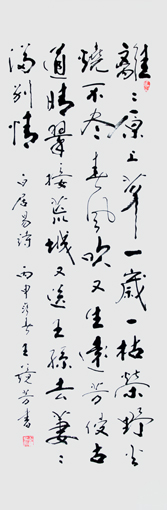 離〻原上草一歲一枯榮野火
燒不盡春風吹又生遠芳侵古
道晴翠接荒城又送王孫去萋〻
滿別情
白居易詩 丙申 王 芳書